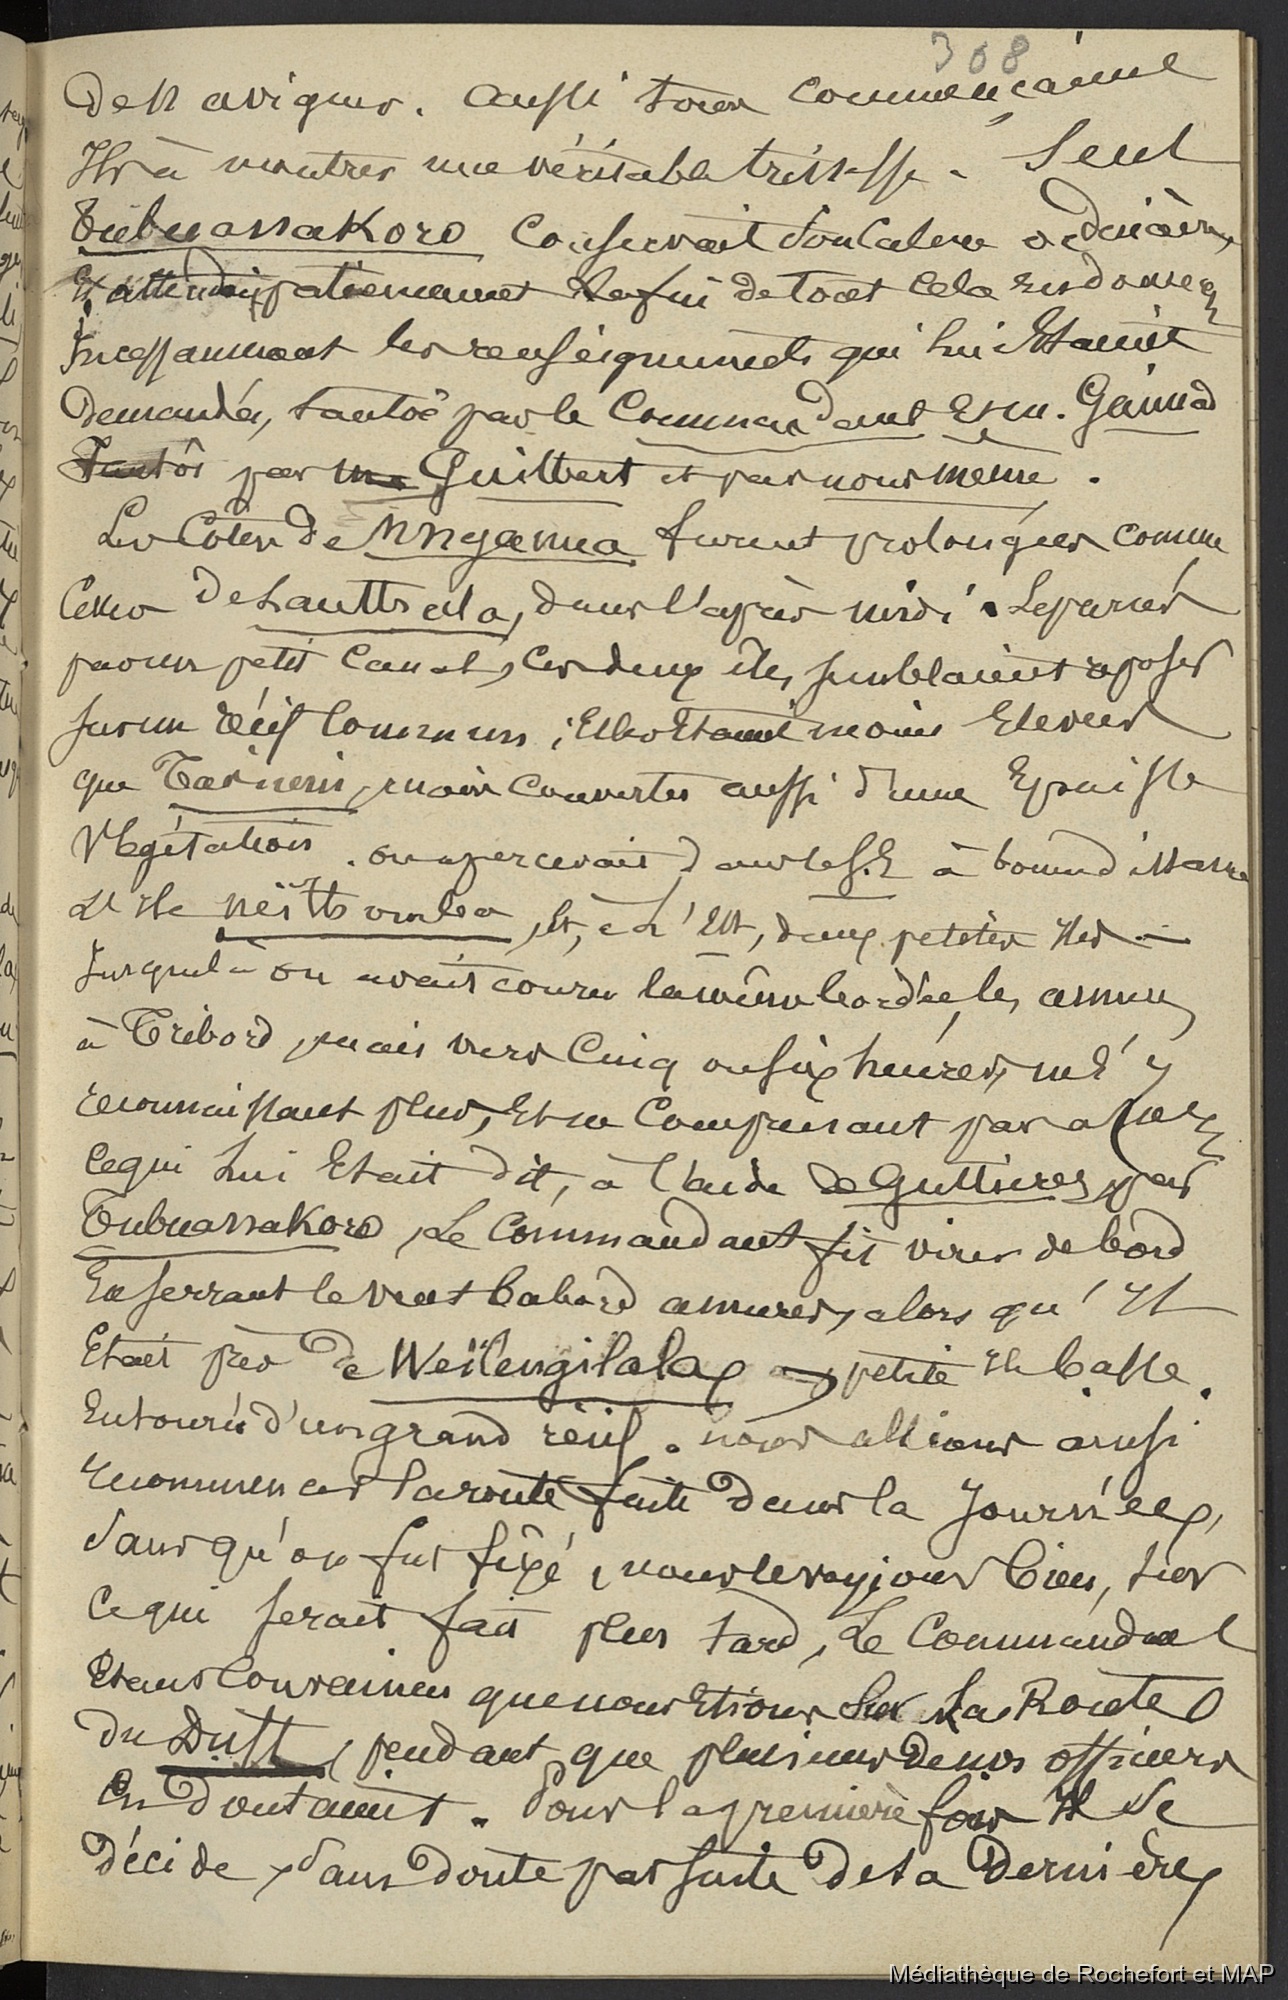 308
de Naviguer. Aussi tous commençaient
Ils à montrer une véritable tristesse. Seul
Tubuassakoro conservait son calme ordinaire,
Et attendait patiemment la fin de tout cela en donnant
Incessamment les renseignements qui lui Etaient
demandés, tantôt par le Commandant Et m. Gaimard
Tantôt par mr Guilbert et par nous même.
Les Côtes de Nngamia furent prolongées comme
Celles de Lauttsala, dans l'après midi. Séparées
par un petit canal, ces deux iles semblaient reposer
sur un récif commun; Elles Etaient moins Elevées
que , mais couvertes aussi d'une Epaisse
Végétation. on apercevait dans le S.E à bonne distance
L'Ile , Et, à L'Est, deux petites Iles
Jusque là on avait couru la même bordée, les amures
à Tribord, mais vers Cinq ou six heures, ne s'y
reconnaissant plus, Et ne Comprenant pas assez
Ce qui lui Etait dit, à l'aide de Guttieres, par
Tubuassakoro, Le Commandant fit virer de bord
En serrant le vent babord amures, alors qu'Il
Etait près de Weïlengilala, petite Ile basse.
Entourée d'un grand récif. nous allions ainsi
recommencer la route faite dans la Journée,
sans qu'on fut fixé, nous le voyions bien, sur
Ce qui serait fait plus tard, Le Commandant
Etant convaincu que nous Etions Sur La Route
du Duff, pendant que plusieurs de nos officiers
En doutaient. Pour la première fois Il se
décide, sans doute par suite de sa dernière
Médiathèque de Rochefort et MAP